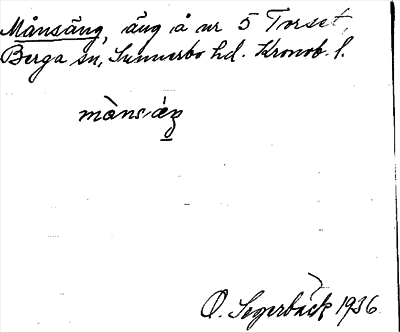 Månsäng, äng å nr 5 Torset,
Berga sn, Sunnerbo hd. Kronob. l.
månsäŋ
O. Segerbäck 1936